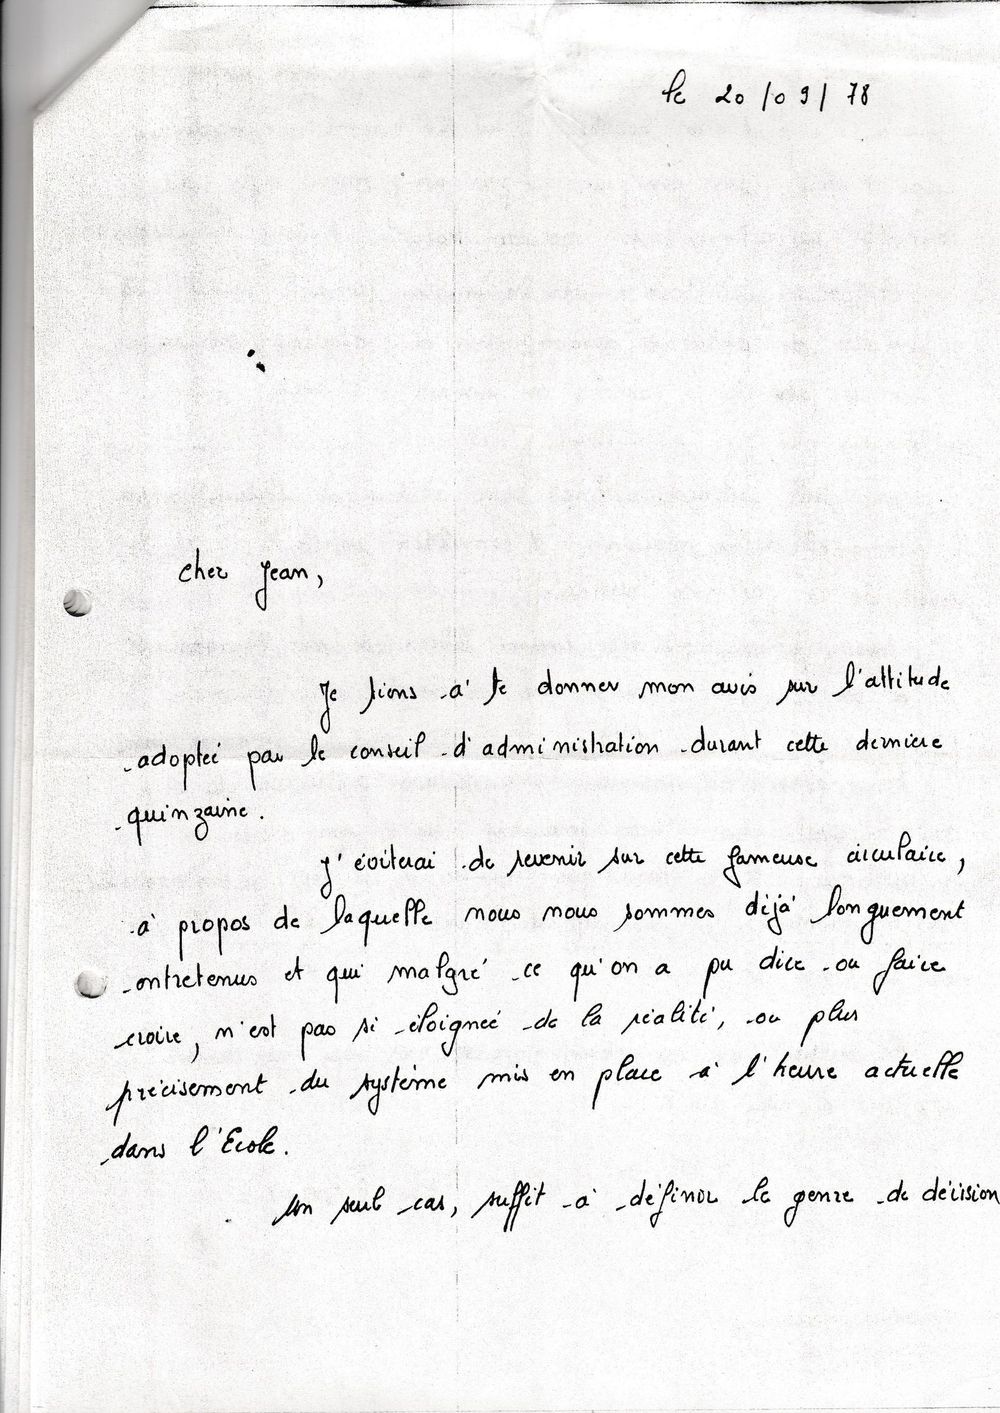 le 20/09/78
cher Jean,
Je tiens à te donner mon avis sur l'attitude
adopteé par le conseil d'administration durant cette derniere
quinzaine.
J'éviterai de revenir sur cette fameuse circulaire,
à propos de laquelle nous nous sommes déjà longuement
entretenus et qui malgré ce qu'on a pu dire ou faire
croire, n'est pas si éloigneé de la réalité, ou plus
précisement du système mis en place à l'heure actuelle
dans l'Ecole.
Un seul cas, suffit à définir le genre de décision